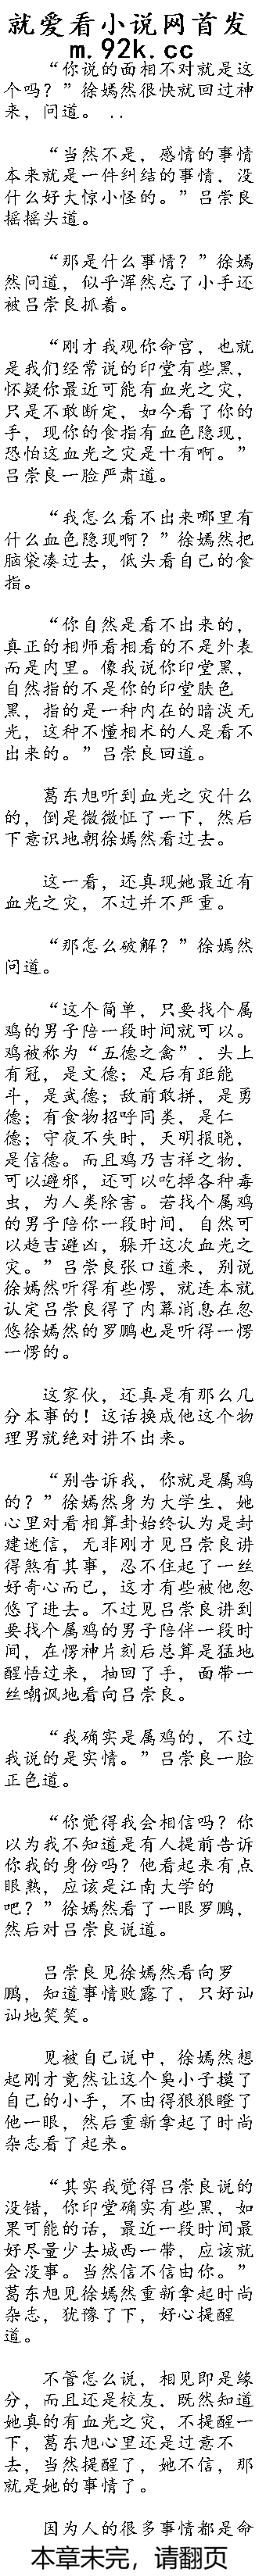 就爱看小说网首发
m.92k.cc
“你说的面相不对就是这
个吗？”徐嫣然很快就回过神
来，问道。 ..
“当然不是，感情的事情
本来就是一件纠结的事情，没
什么好大惊小怪的。”吕崇良
摇摇头道。
“那是什么事情？”徐嫣
然问道，似乎浑然忘了小手还
被吕崇良抓着。
“刚才我观你命宫，也就
是我们经常说的印堂有些黑，
怀疑你最近可能有血光之灾，
只是不敢断定，如今看了你的
手，现你的食指有血色隐现，
恐怕这血光之灾是十有啊。”
吕崇良一脸严肃道。
“我怎么看不出来哪里有
什么血色隐现啊？”徐嫣然把
脑袋凑过去，低头看自己的食
指。
“你自然是看不出来的，
真正的相师看相看的不是外表
而是内里。像我说你印堂黑，
自然指的不是你的印堂肤色
黑，指的是一种内在的暗淡无
光，这种不懂相术的人是看不
出来的。”吕崇良回道。
葛东旭听到血光之灾什么
的，倒是微微怔了一下，然后
下意识地朝徐嫣然看过去。
这一看，还真现她最近有
血光之灾，不过并不严重。
“那怎么破解？”徐嫣然
问道。
“这个简单，只要找个属
鸡的男子陪一段时间就可以。
鸡被称为“五德之禽”，头上
有冠，是文德；足后有距能
斗，是武德；敌前敢拼，是勇
德；有食物招呼同类，是仁
德；守夜不失时，天明报晓，
是信德。而且鸡乃吉祥之物，
可以避邪，还可以吃掉各种毒
虫，为人类除害。若找个属鸡
的男子陪你一段时间，自然可
以趋吉避凶，躲开这次血光之
灾。”吕崇良张口道来，别说
徐嫣然听得有些愣，就连本就
认定吕崇良得了内幕消息在忽
悠徐嫣然的罗鹏也是听得一愣
一愣的。
这家伙，还真是有那么几
分本事的！这话换成他这个物
理男就绝对讲不出来。
“别告诉我，你就是属鸡
的？”徐嫣然身为大学生，她
心里对看相算卦始终认为是封
建迷信，无非刚才见吕崇良讲
得煞有其事，忍不住起了一丝
好奇心而已，这才有些被他忽
悠了进去。不过见吕崇良讲到
要找个属鸡的男子陪伴一段时
间，在愣神片刻后总算是猛地
醒悟过来，抽回了手，面带一
丝嘲讽地看向吕崇良。
“我确实是属鸡的，不过
我说的是实情。”吕崇良一脸
正色道。
“你觉得我会相信吗？你
以为我不知道是有人提前告诉
你我的身份吗？他看起来有点
眼熟，应该是江南大学的
吧？”徐嫣然看了一眼罗鹏，
然后对吕崇良说道。
吕崇良见徐嫣然看向罗
鹏，知道事情败露了，只好讪
讪地笑笑。
见被自己说中，徐嫣然想
起刚才竟然让这个臭小子摸了
自己的小手，不由得狠狠瞪了
他一眼，然后重新拿起了时尚
杂志看了起来。
“其实我觉得吕崇良说的
没错，你印堂确实有些黑，如
果可能的话，最近一段时间最
好尽量少去城西一带，应该就
会没事。当然信不信由你。”
葛东旭见徐嫣然重新拿起时尚
杂志，犹豫了下，好心提醒
道。
不管怎么说，相见即是缘
分，而且还是校友，既然知道
她真的有血光之灾，不提醒一
下，葛东旭心里还是过意不
去，当然提醒了，她不信，那
就是她的事情了。
因为人的很多事情都是命
本章未完，请翻页